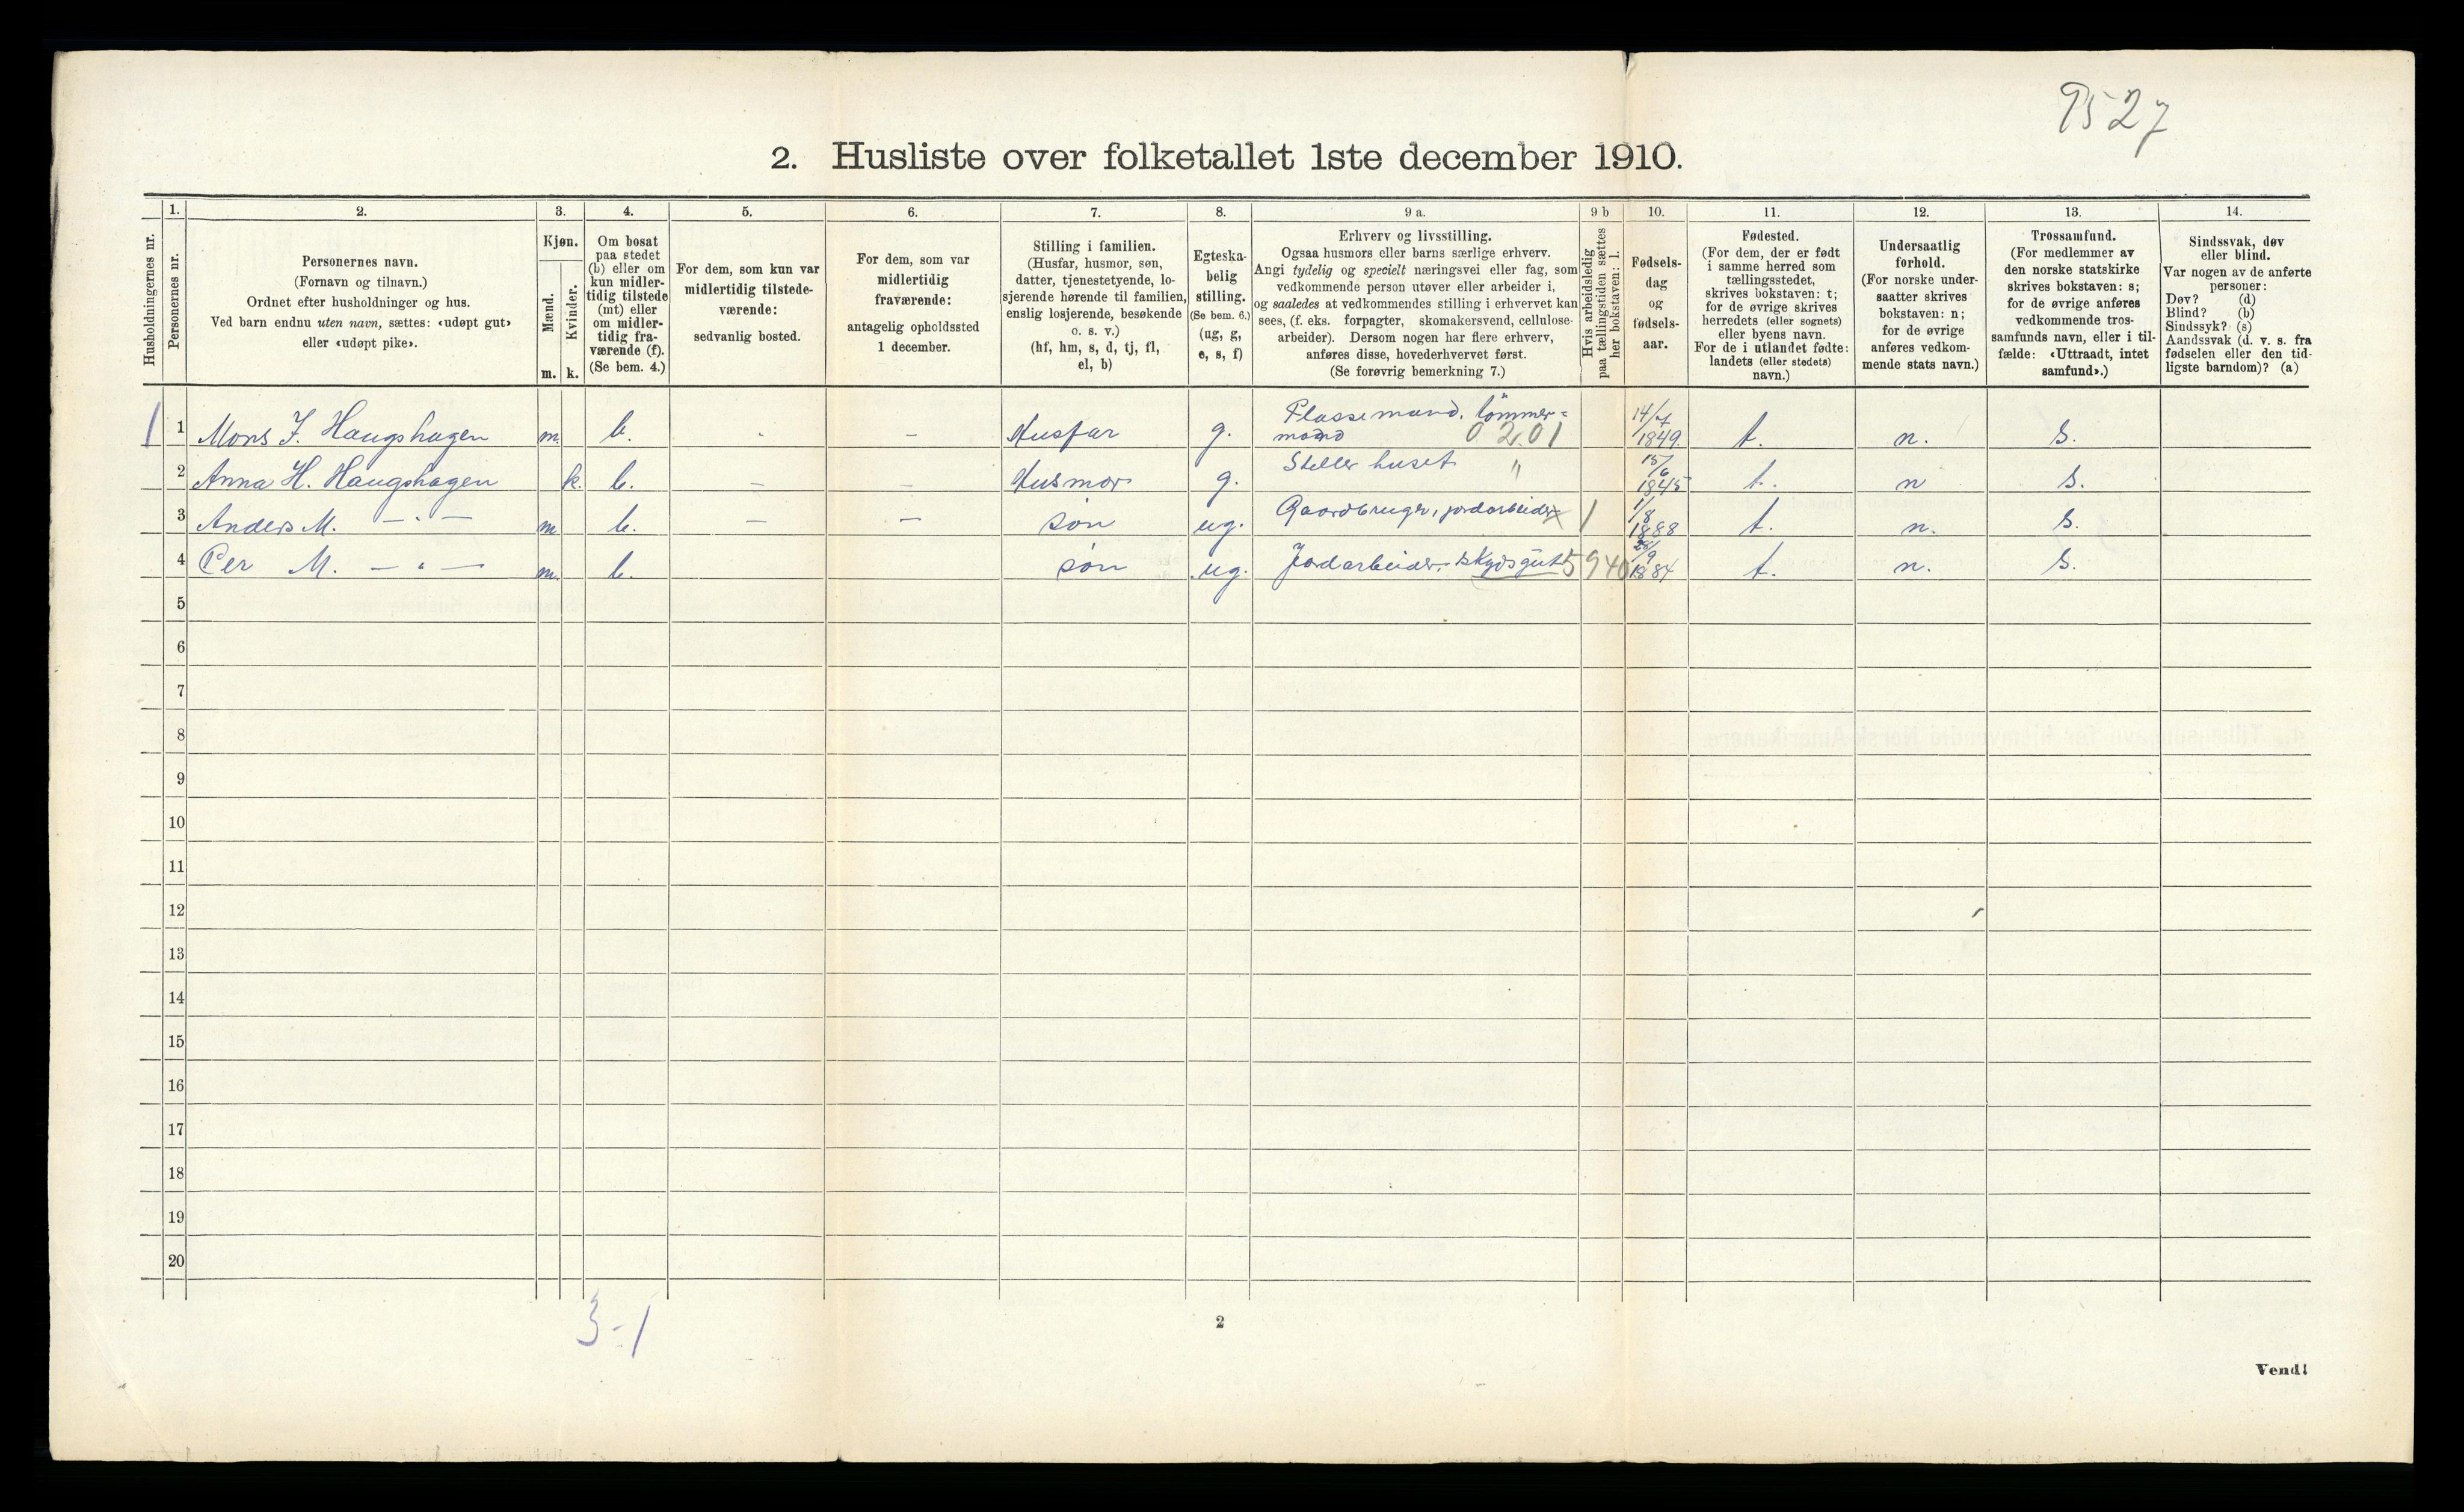 9527
2. Husliste over folketallet 1ste december 1910.
Husholdningernes nr.
1.
Personernes nr.
2.
Personernes navn.
(Fornavn og tilnavn.)
Ordnet efter husholdninger og hus.
Ved barn endnu uten navn, sættes: «udøpt gut»
eller «udøpt pike».
3.
Kjøn.
Mænd.
Kvinder.
m. k.
4.
Om bosat
paa stedet
(b) eller om
kun midler-
tidig tilstede
(mt) eller
om midler-
tidig fra-
værende (f).
(Se bem. 4.)
5.
For dem, som kun var
midlertidig tilstede-
værende:
sedvanlig bosted.
6.
For dem, som var
midlertidig
fraværende:
antagelig opholdssted
1 december.
7.
Stilling i familien.
(Husfar, husmor, søn,
datter, tjenestetyende, lo-
sjerende hørende til familien,
enslig losjerende, besøkende
o. s. v.)
(hf, hm, s, d, tj, fl,
el, b)
8.
Egteska-
belig
stilling.
(Se bem. 6.)
(ug, g,
e, s, f)
9 a.
Erhverv og livsstilling.
Ogsaa husmors eller barns særlige erhverv.
Angi tydelig og specielt næringsvei eller fag, som
vedkommende person utøver eller arbeider i,
og saaledes at vedkommendes stilling i erhvervet kan
sees, (f. eks. forpagter, skomakersvend, cellulose-
arbeider). Dersom nogen har flere erhverv,
anføres disse, hovederhvervet først.
(Se forøvrig bemerkning 7.)
9 b
Hvis arbeidsledig
paa tællingstiden sættes
her bokstaven: l.
10.
Fødsels-
dag
og
fødsels-
aar.
11.
Fødested.
(For dem, der er født
i samme herred som
tællingsstedet,
skrives bokstaven: t;
for de øvrige skrives
herredets (eller sognets)
eller byens navn.
For de i utlandet fødte:
landets (eller stedets)
navn.)
12.
Undersaatlig
forhold.
(For norske under-
saatter skrives
bokstaven: n;
for de øvrige
anføres vedkom-
mende stats navn.)
13.
Trossamfund.
(For medlemmer av
den norske statskirke
skrives bokstaven: s;
for de øvrige anføres
vedkommende tros-
samfunds navn, eller i til-
fælde: «Uttraadt, intet
samfund».)
14.
Sindssvak, døv
eller blind.
Var nogen av de anførte
personer:
Døv? (d)
Blind? (b)
Sindssyk? (s)
Aandssvak (d. v. s. fra
fødselen eller den tid-
ligste barndom)? (a)
1 1 Mons J. Haugshagen m. b. - – Husfar g. Plassemand, tömmer= mand 0201 14/7 1849. t. n. s.
2 Anna H. Haugshagen k. b. – – Husmor g. Steller huset " 15/6 1845 t. n s.
3 Anders M. — " — m b. – – søn ug. Gaardbruger, jordarbeider 1 1/8 1888 t. n. s.
4 Per M. — " — m. b. søn ug. Jordarbeider, skydsgut 5940 1884 t. n. s.
5
6
7
8
9
10
11
12
13
14
15
16
17
18
19
20
3-1
2
Vend!